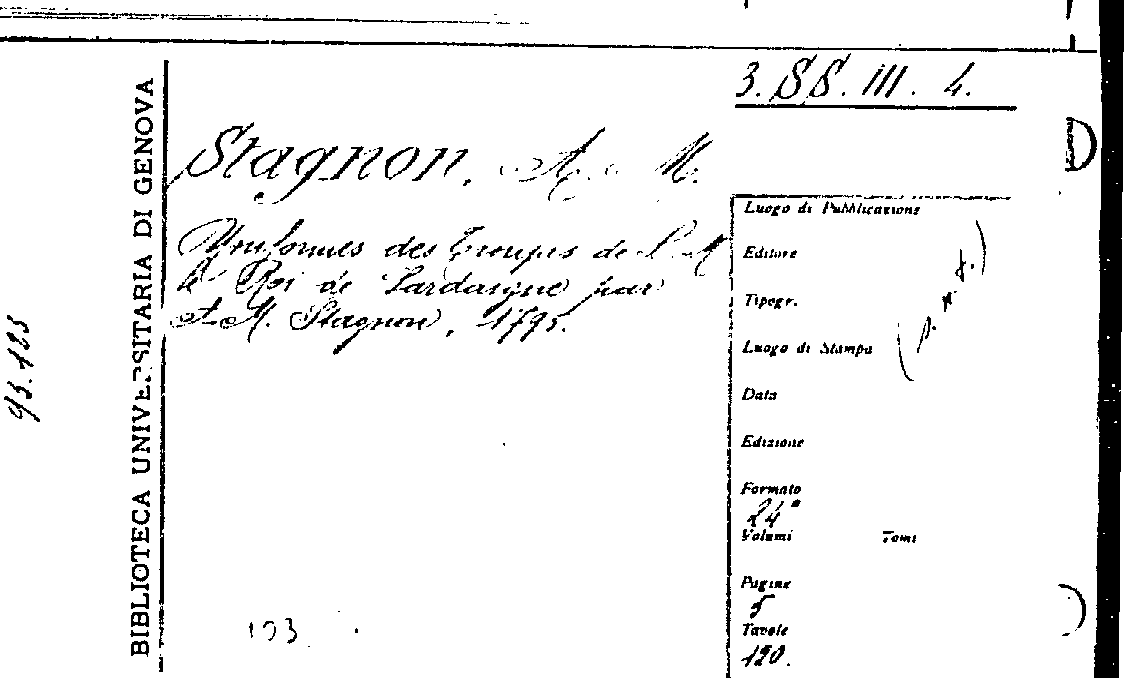 3. SS. III. 4.
BIBLIOTECA UNIVERSITARIA DI GENOVA
93.123
Stagnon, A. M.
Uniformes des Troupes de S. M
le Roi de Sardaigne par
A. M. Stagnon, 1795.
103
Luogo di Pubblicazione
Editore
Tipogr.
Luogo di Stampa
(s. n. t.)
Data
Edizione
Formato
24°
Volumi Tomi
Pagine
5
Tavole
120.